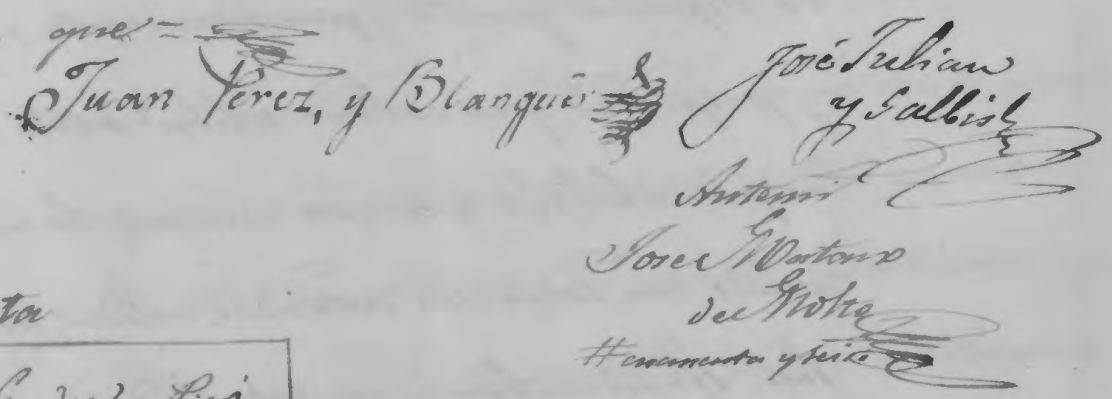 que =
Juan Perez, y Blanquer
José Julian
y Galbis
Ante mi
Jose Mataix
de Molto
# cuarenta y seis
ta